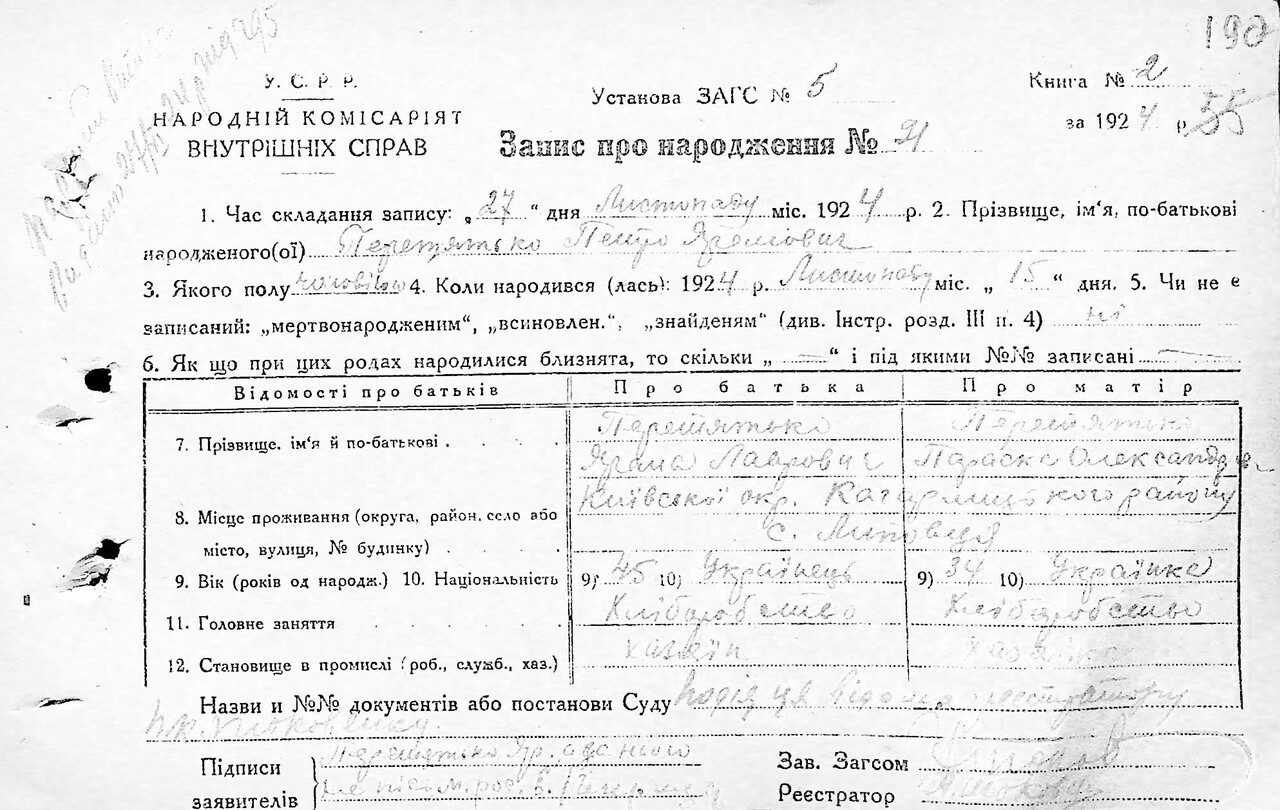 190
У. С. Р. Р.
НАРОДНІЙ КОМІСАРІЯТ
ВНУТРІШНІХ СПРАВ
Установа ЗАГС № 5
Книга № 2
за 1924 р. 55
Запис про народження № 91
1. Час складання запису: „27“ дня Листопаду міс. 1924 р. 2. Прізвище, ім‘я, по-батькові
народженого(ої) Перетятько Петро Яремович
3. Якого полу чоловічого 4. Коли народився (лась): 1924 р. Листопаду міс. „15“ дня. 5. Чи не є
записаний: „мертвонародженим“, „всиновлен.“, „знайденям“ (див. Інстр. розд. III п. 4) ні
6. Як що при цих родах народилися близнята, то скільки „—“ і під якими №№ записані —
Відомості про батьків Про батька Про матір
7. Прізвище, ім‘я й по-батькові . Перетятько Ярема Лаврович Перетятько Параска Олександрів
8. Місце проживання (округа, район, село або
місто, вулиця, № будинку) . Київської окр. Кагарлицького району
с. Липовець
9. Вік (років од народж.) 10. Національність 9) 45 10) Українець 9) 34 10) Українка
11. Головне заняття Хліборобство Хліборобство
12. Становище в промислі (роб., служб., хаз.) хазяїн хазяйка
Назви и №№ документів або постанови Суду подія ця відома реєстратору
Підписи
заявителів
Перетятько Яр. а за нього
Зав. Загсом
Реєстратор